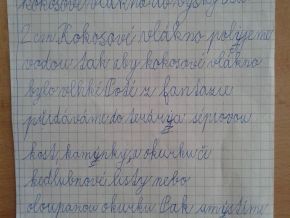 kokosové vlákno do výšky
2 cm. Kokosové vlákno polijeme
vodou tak aby kokosové vlákno
bylo vlhké Poté z fantazie
přidáváme do terária sépiovou
kost, kamínky, okurku či
kedlubnové listy nebo
oloupanou okurku Pak umístíme